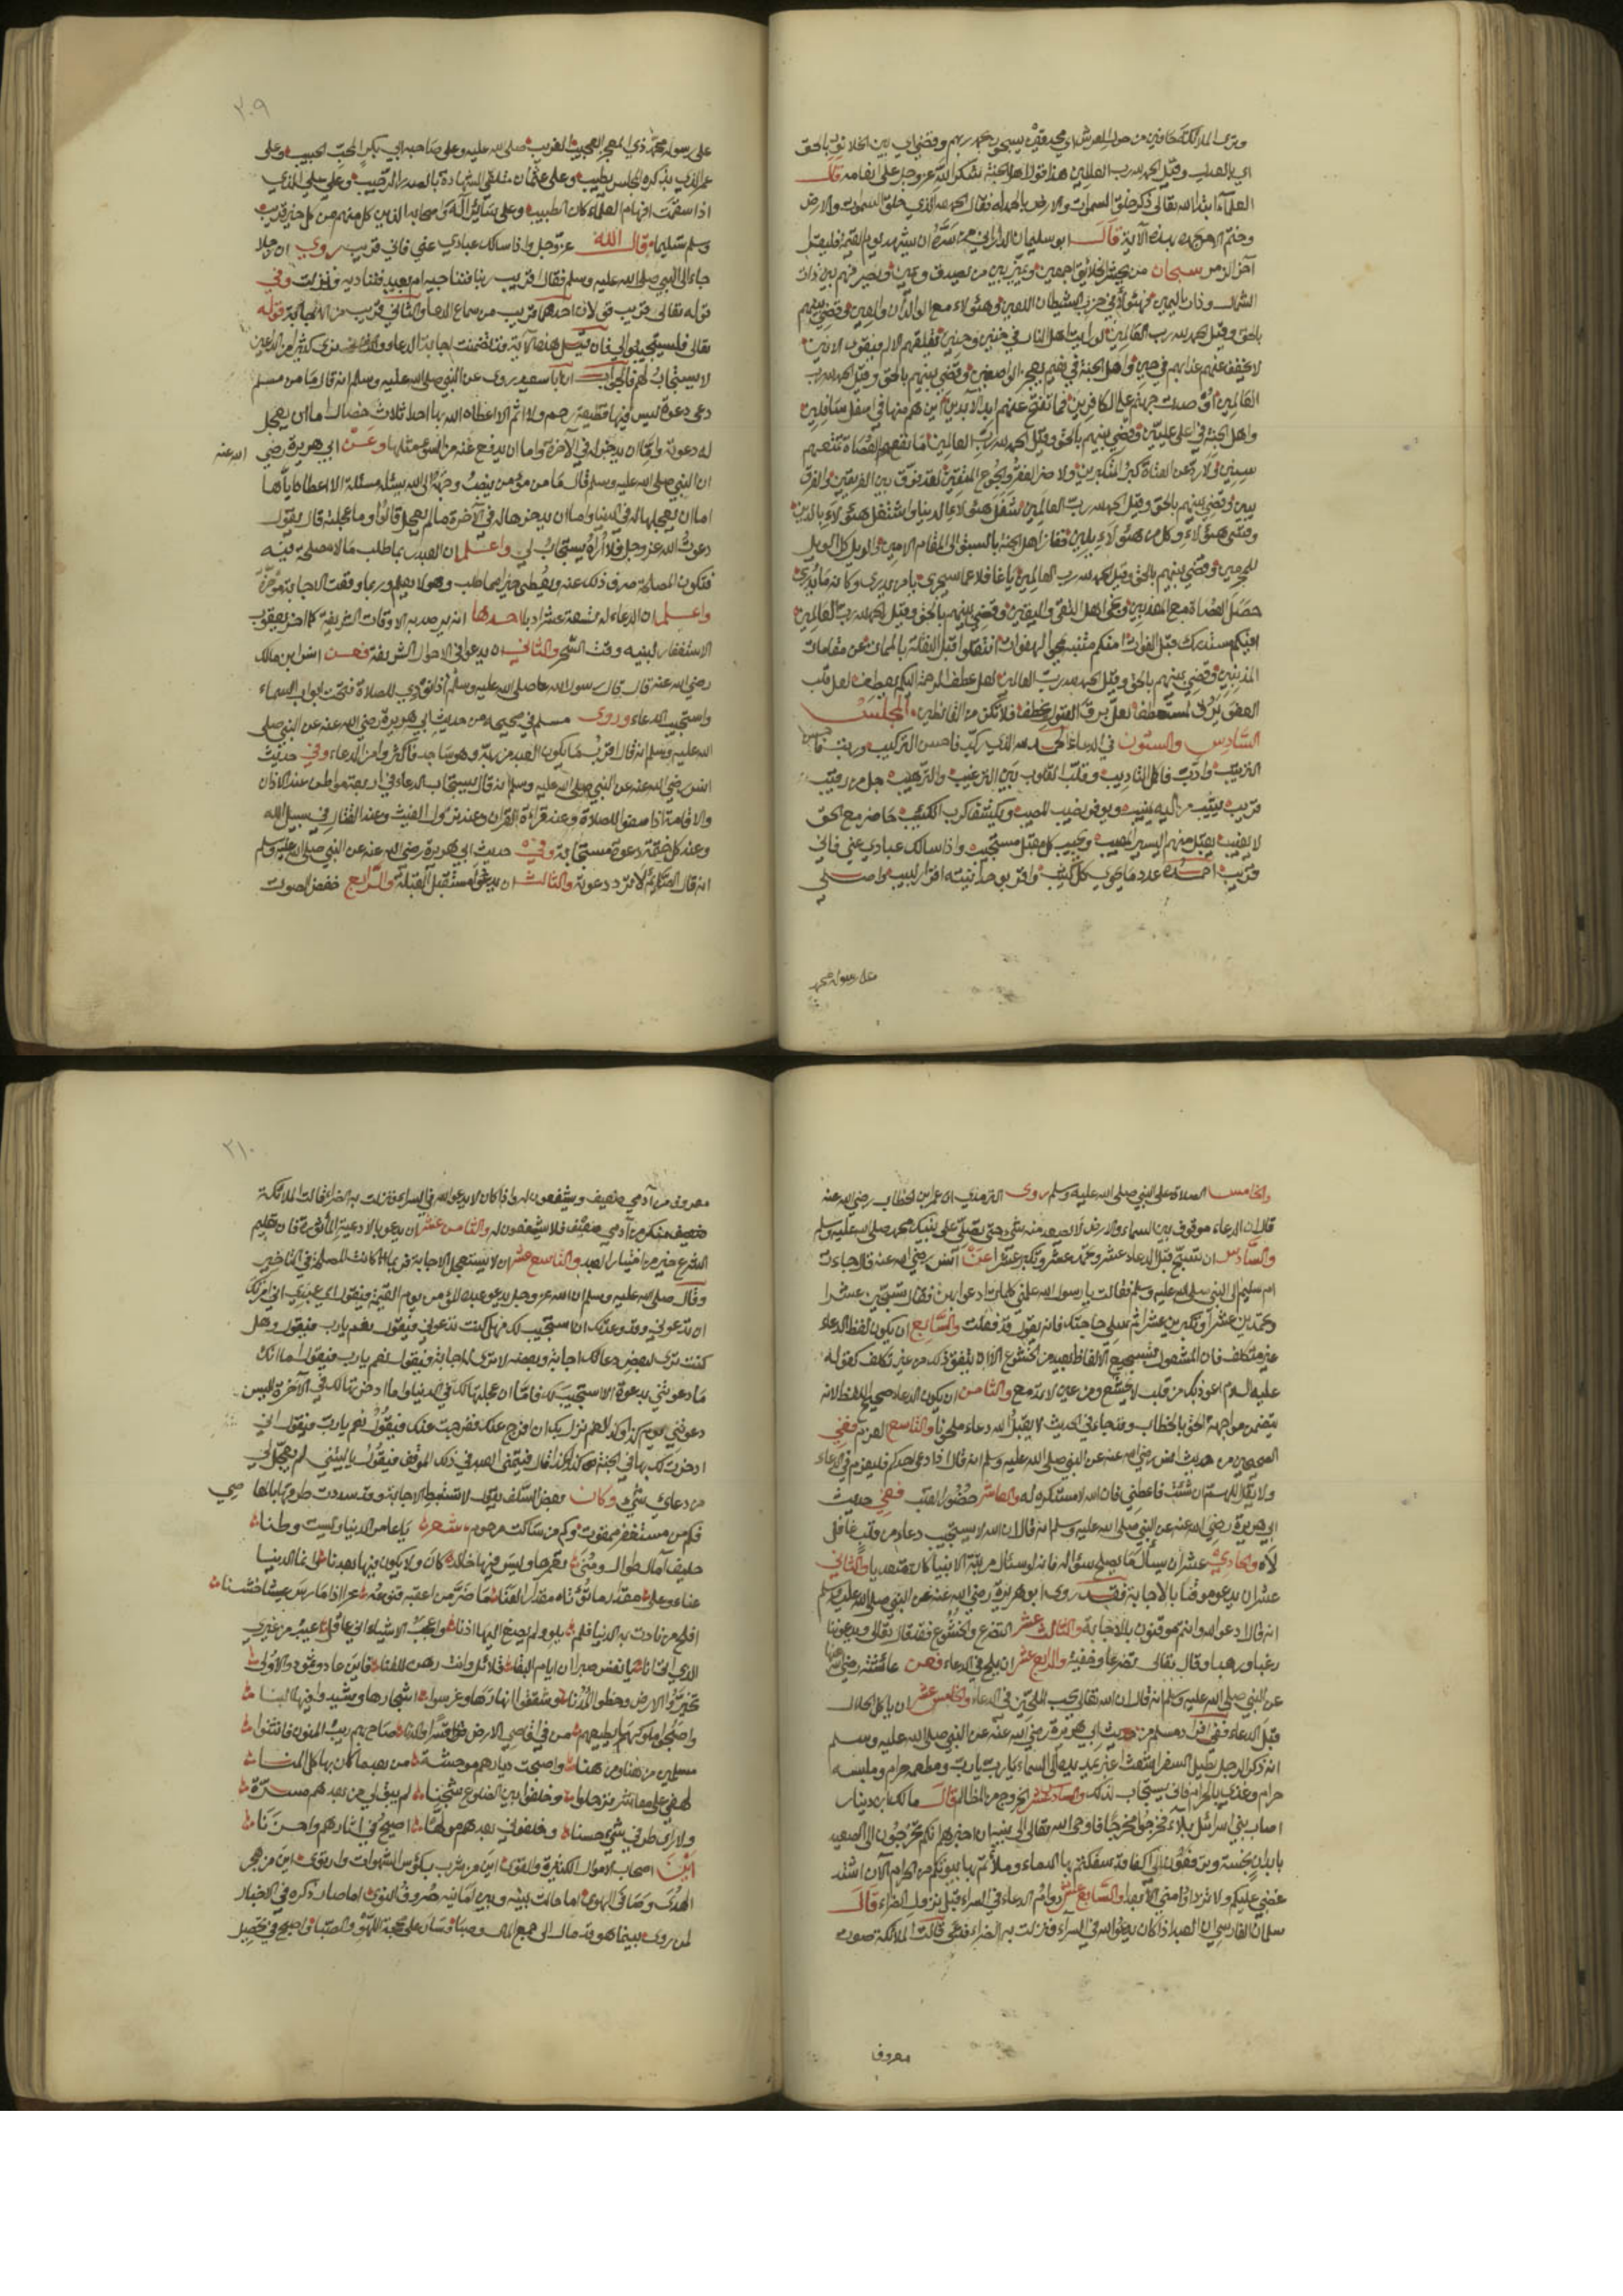 وترى الملائكة حافين من حول العرش اي محدقين يسبحون بحمد ربهم وقضي اي بين الخلائق بالحق
اي بالعدل وقيل الحمد لله رب العالمين هذا قول اهل الجنة شكرا لله عز وجل على انعامه قال
العلماء ابتدا الله تعالى ذكر خلق السموات والارض بالحمد لله فقال الحمد لله الذي خلق السموات والارض
وختم الامر بحمده بهذه الآية قال ابو سليمان الداراني من سره ان يشهد يوم القيمة فليقرا
آخر الزمر سبحان من يحشر الخلائق اجمعين ويميز بين من يصدق ويمين ويصير فيهم بين ذات
الشمال وذات اليمين فهؤلاء في حزب الشيطان اللعين وهؤلاء مع الولدان والعين وقضي بينهم
بالحق وقيل الحمد لله رب العالمين لو رايت اهل النار في حنين وحنين
لا يخفف عنهم عذابهم في حين واهل الجنة في نعيم يعجز الواصفين وقضي بينهم بالحق وقيل الحمد لله رب
العالمين اوصدت جهنم على الكافرين فما تفتح عنهم ابد الآبدين اين هم منها في اسفل سافلين
واهل الجنة في اعلى عليين وقضي بينهم بالحق وقيل الحمد لله رب العالمين
ولا ضر الفقر والجوع المتقين لقد فرق بين الفريقين والفرق
يبين وقضي بينهم بالحق وقيل الحمد لله رب العالمين شغل هؤلاء بالدنيا واشتغل هؤلاء بالدين
ففاز اهل الجنة بالسبق الى المقام الامين والويل كل الويل
للمجرمين وقضي بينهم بالحق وقيل الحمد لله رب العالمين يا غافلا عما سيجري
حصل العصاة مع المعذبين ونجى اهل التقى واليقين وقضي بينهم بالحق وقيل الحمد لله رب العالمين
افيكم مستدرك قبل الفوات امنكم متنبه لمحو الهفوات انتقلوا قبل النقلة بالممات عن مقامات
المذنبين وقضي بينهم بالحق وقيل الحمد لله رب العالمين لعل عطف الرحمة اليكم يعطف لعل قلب
لعل برق القبول يخطف فلا تكن من القانطين المجلس
السادس والستون في الدعاء الحمد لله الذي ركب فاحسن التركيب ورتب فاحسن
الترتيب وادب فاكمل التاديب وقلب القلوب بين الترغيب والترهيب جل من رقيب
قريب يثيب من اليه ينيب ويوفر نصيب المصيب ويكشف الكرب الكئيب حاضر مع الحق
لا يغيب يقبل منهم اليسير المعيب ويجيب كل مقبل مستجيب واذا سالك عبادي عني فاني
قريب احمده عدد ما يحوي كل كثيب واقر بوحدانيته اقرار لبيب واصلي
على رسوله محمد
٢٠٩
على رسوله محمد ذي المعجز العجيب الغريب صلى الله عليه وعلى صاحبه ابي بكر المحب الحبيب وعلى
عمر الذي بذكره المجلس يطيب وعلى عثمان متلقي الشهادة بالصدر الرحيب وعلى علي الذي
اذا سقمت افهام العلماء كان الطبيب وعلى سائر آله واصحابه الذين كل منهم من كل خير قريب
وسلم تسليما قال الله عز وجل واذا سالك عبادي عني فاني قريب روي ان رجلا
جاء الى النبي صلى الله عليه وسلم فقال اقريب ربنا فنناجيه ام بعيد فنناديه فنزلت وفي
قوله تعالى قريب قولان احدهما قريب من سماع الدعاء والثاني قريب من الاجابة قوله
تعالى فليستجيبوا لي فان قيل هذه الآية قد تضمنت اجابة الدعاء ونرى كثيرا من الداعين
لا يستجاب لهم فالجواب ان ابا سعيد روى عن النبي صلى الله عليه وسلم انه قال ما من مسلم
دعى دعوة ليس فيها قطيعة رحم ولا اثم الا اعطاه الله بها احدى ثلاث خصال اما ان يعجل
له دعوته واما ان يدخر له في الآخرة واما ان يدفع عنه من السوء مثلها وعن ابي هريرة رضي الله عنه
ان النبي صلى الله عليه وسلم قال ما من مؤمن ينصب وجهه الى الله يسئله مسئلة الا اعطاه اياها
اما ان يعجلها له في الدنيا واما ان يدخرها له في الآخرة ما لم يعجل قالوا وما عجلته قال يقول
دعوت الله عز وجل فلا اراه يستجاب لي واعلم ان العبد ربما طلب ما لا مصلحة فيه
فتكون المصلحة صرف ذلك عنه ويعطى خيرا مما طلب وهو لا يعلم وربما وقعت الاجابة مؤخرة
واعلم ان الدعاء له تسعة عشر ادبا احدها انه يرصد به الاوقات الشريفة كما اخر يعقوب
الاستغفار لبنيه وقت السحر والثاني ان يدعو في الاحوال الشريفة فعن انس ابن مالك
رضي الله عنه قال قال رسول الله صلى الله عليه وسلم اذا نودي للصلاة فتحت ابواب السماء
واستجيب الدعاء وروى مسلم في صحيحه من حديث ابي هريرة رضي الله عنه عن النبي صلى
الله عليه وسلم انه قال اقرب ما يكون العبد من ربه وهو ساجد فاكثروا من الدعاء وفي حديث
انس رضي الله عنه عن النبي صلى الله عليه وسلم انه قال يستجاب الدعاء في اربعة مواطن عند الاذان
والاقامة اذا صفوا للصلاة وعند قراءة القران وعند نزول الغيث وعند القتال في سبيل الله
وعند كل ختمة دعوة مستجابة وفي حديث ابي هريرة رضي الله عنه عن النبي صلى الله عليه وسلم
انه قال الصائم لا ترد دعوته والثالث ان يدعو مستقبل القبلة والرابع خفض الصوت
والخامس الصلاة على النبي صلى الله عليه وسلم روى الترمذي ان عمر ابن الخطاب رضي الله عنه
قال ان الدعاء موقوف بين السماء والارض لا يصعد منه شيء حتى تصلي على نبيك محمد صلى الله عليه وسلم
والسادس ان تسبح قبل الدعاء عشرا وتحمد عشرا وتكبر عشرا عن انس رضي الله عنه قال جاءت
ام سليم الى النبي صلى الله عليه وسلم فقالت يا رسول الله علمني كلمات ادعو بهن فقال تسبحين عشرا
وتحمدين عشرا وتكبرين عشرا ثم سلي حاجتك فانه يقول قد فعلت والسابع ان يكون لفظ الدعاء
غير متكلف فان المشغول بتسجيع الالفاظ بعيد من الخشوع الا ان يتفق ذلك من غير تكلف كقوله
عليه السلام اعوذ بك من قلب لا يخشع ومن عين لا تدمع والثامن ان يكون الدعاء صحيح اللفظ لانه
يتضمن مواجهة الحق بالخطاب وقد جاء في الحديث لا يقبل الله دعاء ملحونا والتاسع العزم ففي
الصحيحين من حديث انس رضي الله عنه عن النبي صلى الله عليه وسلم انه قال اذا دعى احدكم فليعزم في الدعاء
ولا يقل اللهم ان شئت فاعطني فان الله لا مستكره له والعاشر حضور القلب ففي حديث
ابي هريرة رضي الله عنه عن النبي صلى الله عليه وسلم انه قال ان الله لا يستجيب دعاء من قلب غافل
لاه والحادي عشر ان يسأل ما يصلح سؤاله فانه لو سئال مرتبة الانبيا كان متعديا والثاني
عشر ان يدعو موقنا بالاجابة فقد روى ابو هريرة رضي الله عنه عن النبي صلى الله عليه وسلم
انه قال ادعوا الله وانتم موقنون بالاجابة والثالث عشر التضرع والخشوع فقد قال تعالى ويدعوننا
رغبا ورهبا وقال تعالى تضرعا وخفية والرابع عشر ان يلح في الدعاء فعن عائشة رضي الله عنها
عن النبي صلى الله عليه وسلم انه قال ان الله تعالى يحب الملحين في الدعاء والخامس عشر ان ياكل الحلال
قبل الدعاء ففي افراد مسلم من حديث ابي هريرة رضي الله عنه عن النبي صلى الله عليه وسلم
انه ذكر الرجل يطيل السفر اشعث اغبر يمد يديه الى السماء يا رب يا رب ومطعمه حرام وملبسه
حرام وغذي بالحرام فاني يستجاب لذلك والسادس عشر الخروج من المظالم قال مالك ابن دينار
اصاب بني اسرائل بلاء فخرجوا مخرجا فاوحى الله تعالى الى نبيه ان اخبرهم انكم تخرجون الى الصعيد
بابدان نجسة وترفعون الي اكفا قد سفكتم بها الدماء وملأتم بها بيوتكم من الحرام الآن اشتد
غضبي عليكم ولا تزدادوا مني الا بعدا والسابع عشر دوام الدعاء في السراء قبل نزول الضراء قال
سلمان الفارسي ان العبد اذا كان يدعو الله في السراء فنزلت به الضراء فدعى قالت الملائكة صوت
معروف
٢١٠
معروف من آدمي ضعيف ويشفعون له واذا كان لا يدعو الله في السراء فنزلت به الضراء قالت الملائكة
منكر من آدمي ضعيف فلا يشفعون له والثامن عشر ان يدعو بالادعية المأثورة فان تعليم
الشرع خير من اختيار العبد والتاسع عشر ان لا يستعجل الاجابة فربما كانت المصلحة في التاخير
وقال صلى الله عليه وسلم ان الله عز وجل يدعو عبده المؤمن يوم القيمة فيقول اي عبدي اني امرتك
ان تدعوني ووعدتك ان استجيب لك فهل كنت تدعوني فيقول نعم يا رب فيقول وهل
كنت ترى لبعض دعائك اجابة وبعضه لا ترى له اجابة فيقول نعم يا رب فيقول اما انك
ما دعوتني بدعوة الا استجيب لك فاما ان عجلتها لك في الدنيا واما ادخرتها لك في الآخرة اليس
دعوتني يوم كذا وكذا لهم نزل بك ان افرج عنك ففرجت عنك فيقول نعم يا رب فيقول اني
ادخرت لك بها في الجنة كذا وكذا قال فيتمنى العبد في ذلك الموقف فيقول يا ليتني لم يعجل لي
من دعائي شيء وكان بعض السلف يقول لا تستبطئ الاجابة وقد سددت طرقها بالمعاصي
فكم من مستغفر ممقوت وكم من ساكت مرحوم شعر يا عامر الدنيا وليست وطنا
حليف آمال طوال ومنى يعمرها وليس فيها خالد كان ولا يكون فيها بعدنا وانما الدنيا
عناء وعلى مقدار ما تؤتاه مقدار العنا ما ضر من اعقبه
افلح من نادت به الدنيا فلم يلو ولم يصغ اليها اذنا واعجب الاشياء اني غافل عيب من غيري
الذي اتى انا يا نفس صبرا ان ايام البقا قلائل وانت رهن للفنا فاين عاد وثمود والاولى
تخيروا الارض وحطوا المدنا وشققوا انهارها وغرسوا اشجارها وشيدوا فيها البنا
مسلمين من هنا ومن هنا واصبحت ديارهم موحشة من بعد ما كان بها كل المنا
لهفي على معاشر قد رحلوا وخلفوا بين الضلوع شجنا لم يبق لي من بعدهم مسرة
ولا راى طرفي شيء حسنا وخلفوني بعدهم اصيح في اثارهم واحزنا
اين اصحاب الاموال الكثيرة والقوى اين من شرب بكؤس الشهوات وارتوى اين من هجر
الهدى وصافى الهوى اما حالت بينه وبين امانيه صروف النوى اما صار ذكره في الاخبار
لمن روى بينما هو قد مال الى جمع المال وصبا وسار على محجة اللهو والصبا واصبح في